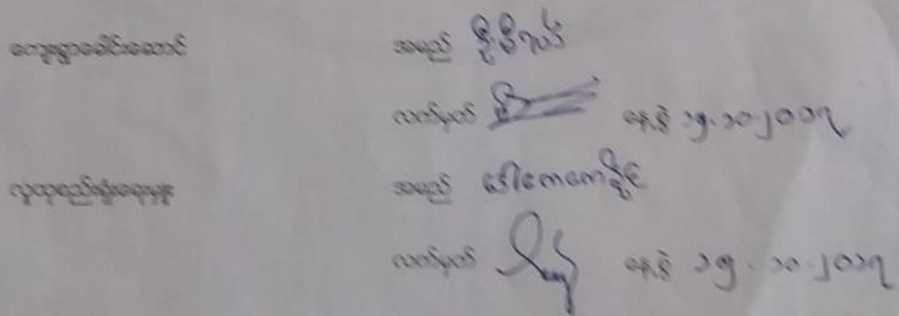 ကျေးရွာခေါင်းဆောင် အမည် ဦးစိုလယ်
လက်မှတ် နေ့စွဲ ၁၅.၁၀.၂၀၁၇
လူထုစည်းရုံးရေးမှူး အမည် ဒေါ်ကေကေခိုင်
လက်မှတ် နေ့စွဲ ၁၅.၁၀.၂၀၁၇